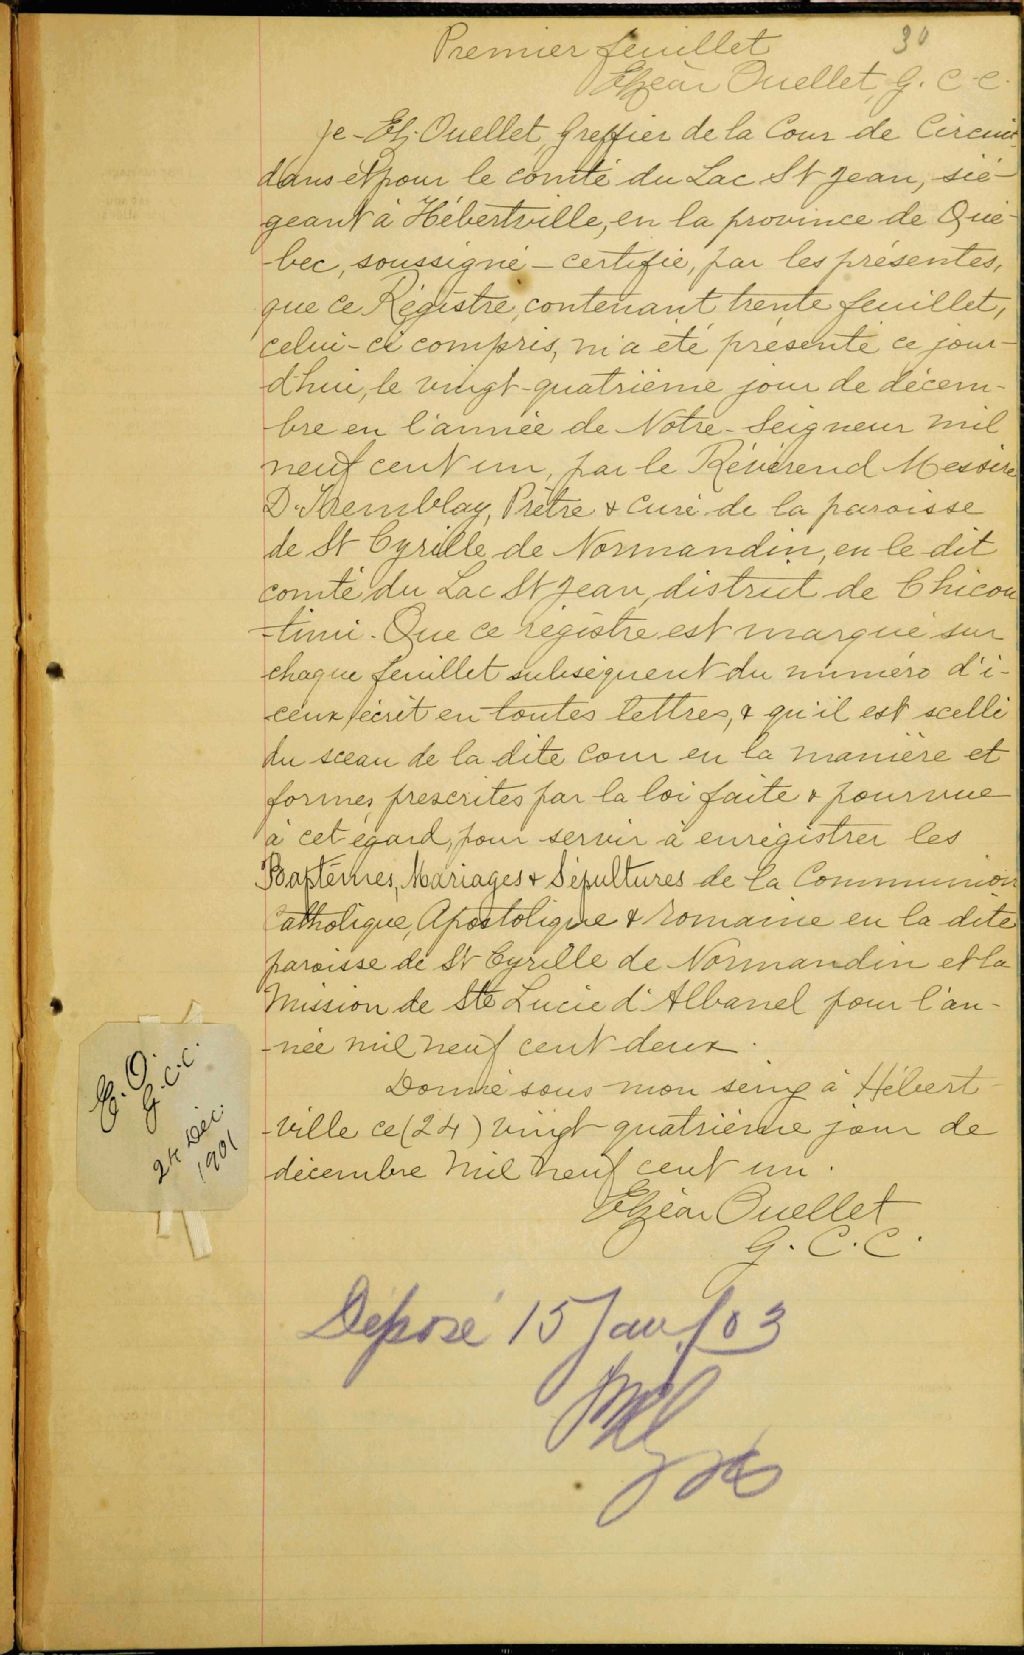 Premier feuillet
30
Elzéar Ouellet, G. C. C.
Je - Elz. Ouellet, Greffier de la Cour de Circuit
dans et pour le comté du Lac St Jean, sié-
geant à Hébertville, en la province de Qué-
-bec, soussigné - certifie, par les présentes,
que ce Régistre, contenant trente feuillet,
celui-ci compris, m'a été présenté ce jour-
d'hui, le vingt-quatrième jour de décem-
-bre en l'année de Notre-Seigneur mil
neuf cent un, par le Révérend Messire
D. Tremblay, Prêtre & Curé de la paroisse
de St Cyrille de Normandin, en le dit
comté du Lac St Jean, district de Chicou
-timi. Que ce régistre est marqué sur
chaque feuillet subséquent du numéro d'i-
-ceux écrit en toutes lettres, & qu'il est scellé
du sceau de la dite Cour en la manière et
formes prescrites par la loi faite & pourvue
à cet égard, pour servir à enrégistrer les
Baptêmes, Mariages & Sépultures de la Communion
Catholique, Apostolique & Romaine en la dite
paroisse de St Cyrille de Normandin et la
Mission de Ste Lucie d'Albanel pour l'an-
-née mil neuf cent deux.
Donné sous mon seing à Hébert-
-ville ce (24) vingt quatrième jour de
décembre mil neuf cent un.
Elzéar Ouellet
G. C. C.
E. O.
G. C. C.
24 Déc.
1901
Déposé 15 Jan. /03